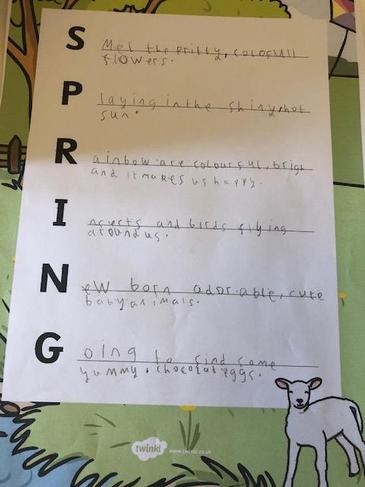 S Mel the pritty, colofull
flowers.
P laying in the shiny, hot
sun.
R ainbow are colourful, brigt
and it makes us happy.
I ncects and birds flying
around us.
N ew born adorable, cute
baby animals.
G oing to find some
yummy, chocolat eggs.
twinkl www.twinkl.co.uk